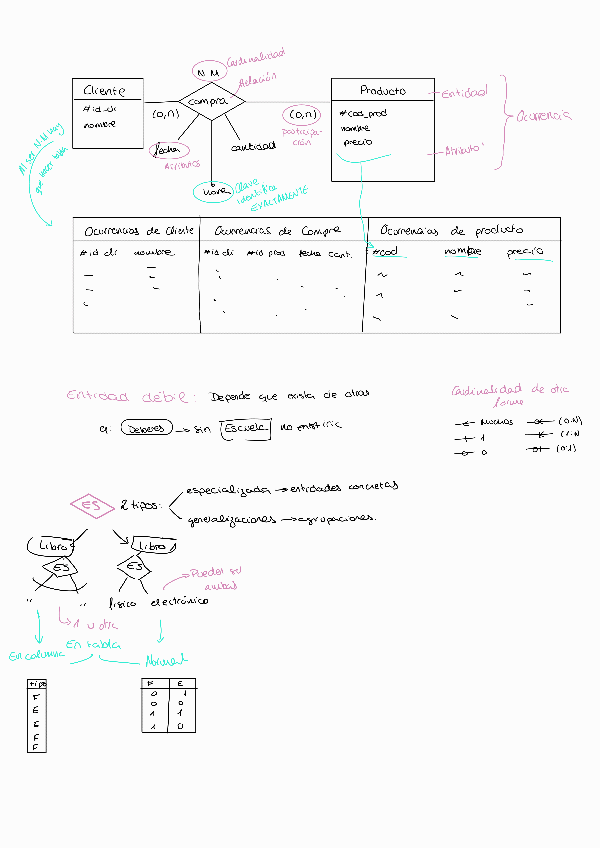 Cardinalidad
N M
Relación
Cliente
#id_cli
nombre
(0,n)
compra
(0,n)
participa-
ción
Producto
#cod_prod
nombre
precio
Entidad
Atributo
Ocurrencia
fecha
Atributos
cantidad
Clave
identifica
EXACTAMENTE
Al ser N:N hay
que hacer tabla
Ocurrencias de Cliente
Ocurrencias de Compra
Ocurrencias de producto
#id cli nombre
#id cli #id prod fecha cant.
#cod nombre precio
Entidad débil: Depende que exista de otras
Deberes → sin Escuela no existiría
Cardinalidad de otra
forma
Muchos (0:N)
1 (1:N
0 (0:1)
ES 2 tipos:
especializada → entidades concretas
generalizaciones → agrupaciones.
Libro
Libro
ES
ES
" "
físico electrónico
→ Puedes ser
ambas
→ 1 u otra
En tabla
En columna
Normal
tipo
F
E
E
F
F
F E
0 1
0 0
1 1
1 0